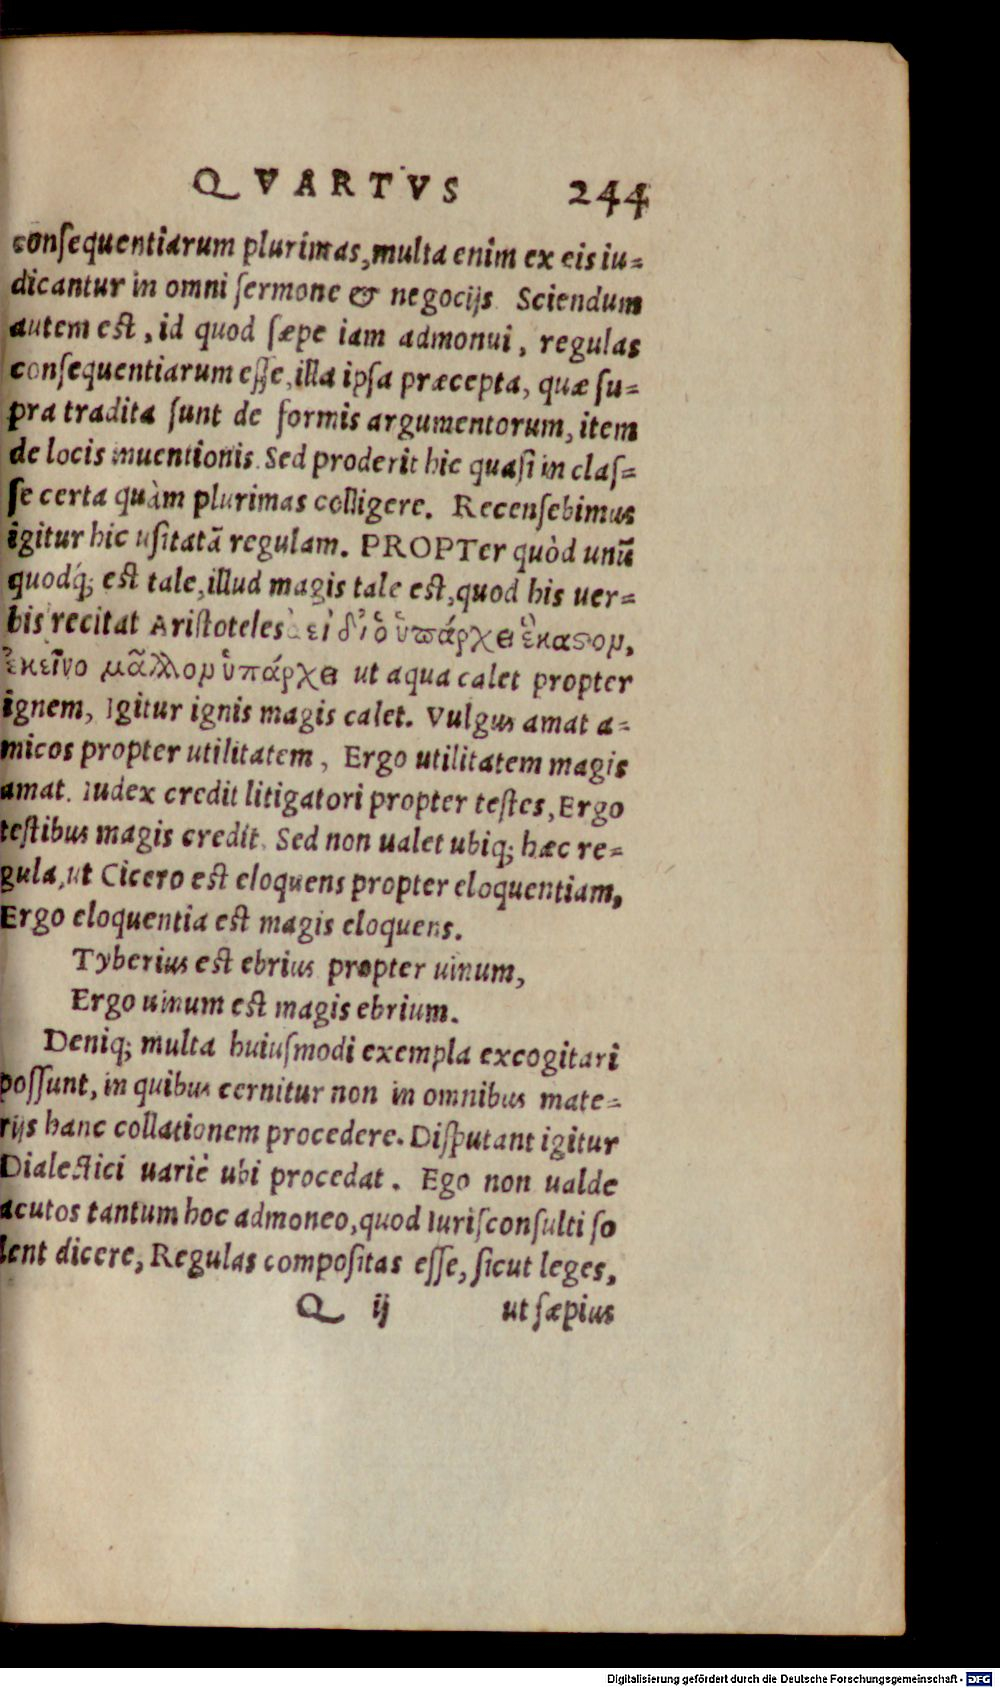 QVARTVS 244
conſequentiarum plurimas, multa enim ex eis iu=
dicantur in omni ſermone & negocijs Sciendum
autem est, id quod ſæpe iam admonui, regulas
conſequentiarum eſſe, illa ipſa præcepta, quæ ſu=
pra tradita ſunt de formis argumentorum, item
de locis inuentionis. Sed proderit hic quaſi in claſ=
ſe certa quàm plurimas colligere. Recenſebimus
igitur hic uſitatã regulam. PROPTer quòd unũ
quodq́; est tale, illud magis tale est, quod his uer=
bis recitat Ariſtoteles ἀεὶ δι' ὃ ὑπάρχει ἕκαστον,
ἐκεῖνο μᾶλλον ὑπάρχει ut aqua calet propter
ignem, Igitur ignis magis calet. Vulgus amat a=
micos propter utilitatem, Ergo utilitatem magis
amat. Iudex credit litigatori propter teſtes, Ergo
teſtibus magis credit. Sed non ualet ubiq; hæc re=
gula, ut Cicero est eloquens propter eloquentiam,
Ergo eloquentia est magis eloquens.
Tyberius est ebrius propter uinum,
Ergo uinum est magis ebrium.
Deniq; multa huiuſmodi exempla excogitari
poſſunt, in quibus cernitur non in omnibus mate=
rijs hanc collationem procedere. Diſputant igitur
Dialectici uariè ubi procedat. Ego non ualde
acutos tantum hoc admoneo, quod Iuriſconſulti ſo
lent dicere, Regulas compoſitas eſſe, ſicut leges,
Q ij ut ſæpius
Digitalisierung gefördert durch die Deutsche Forschungsgemeinschaft - DFG